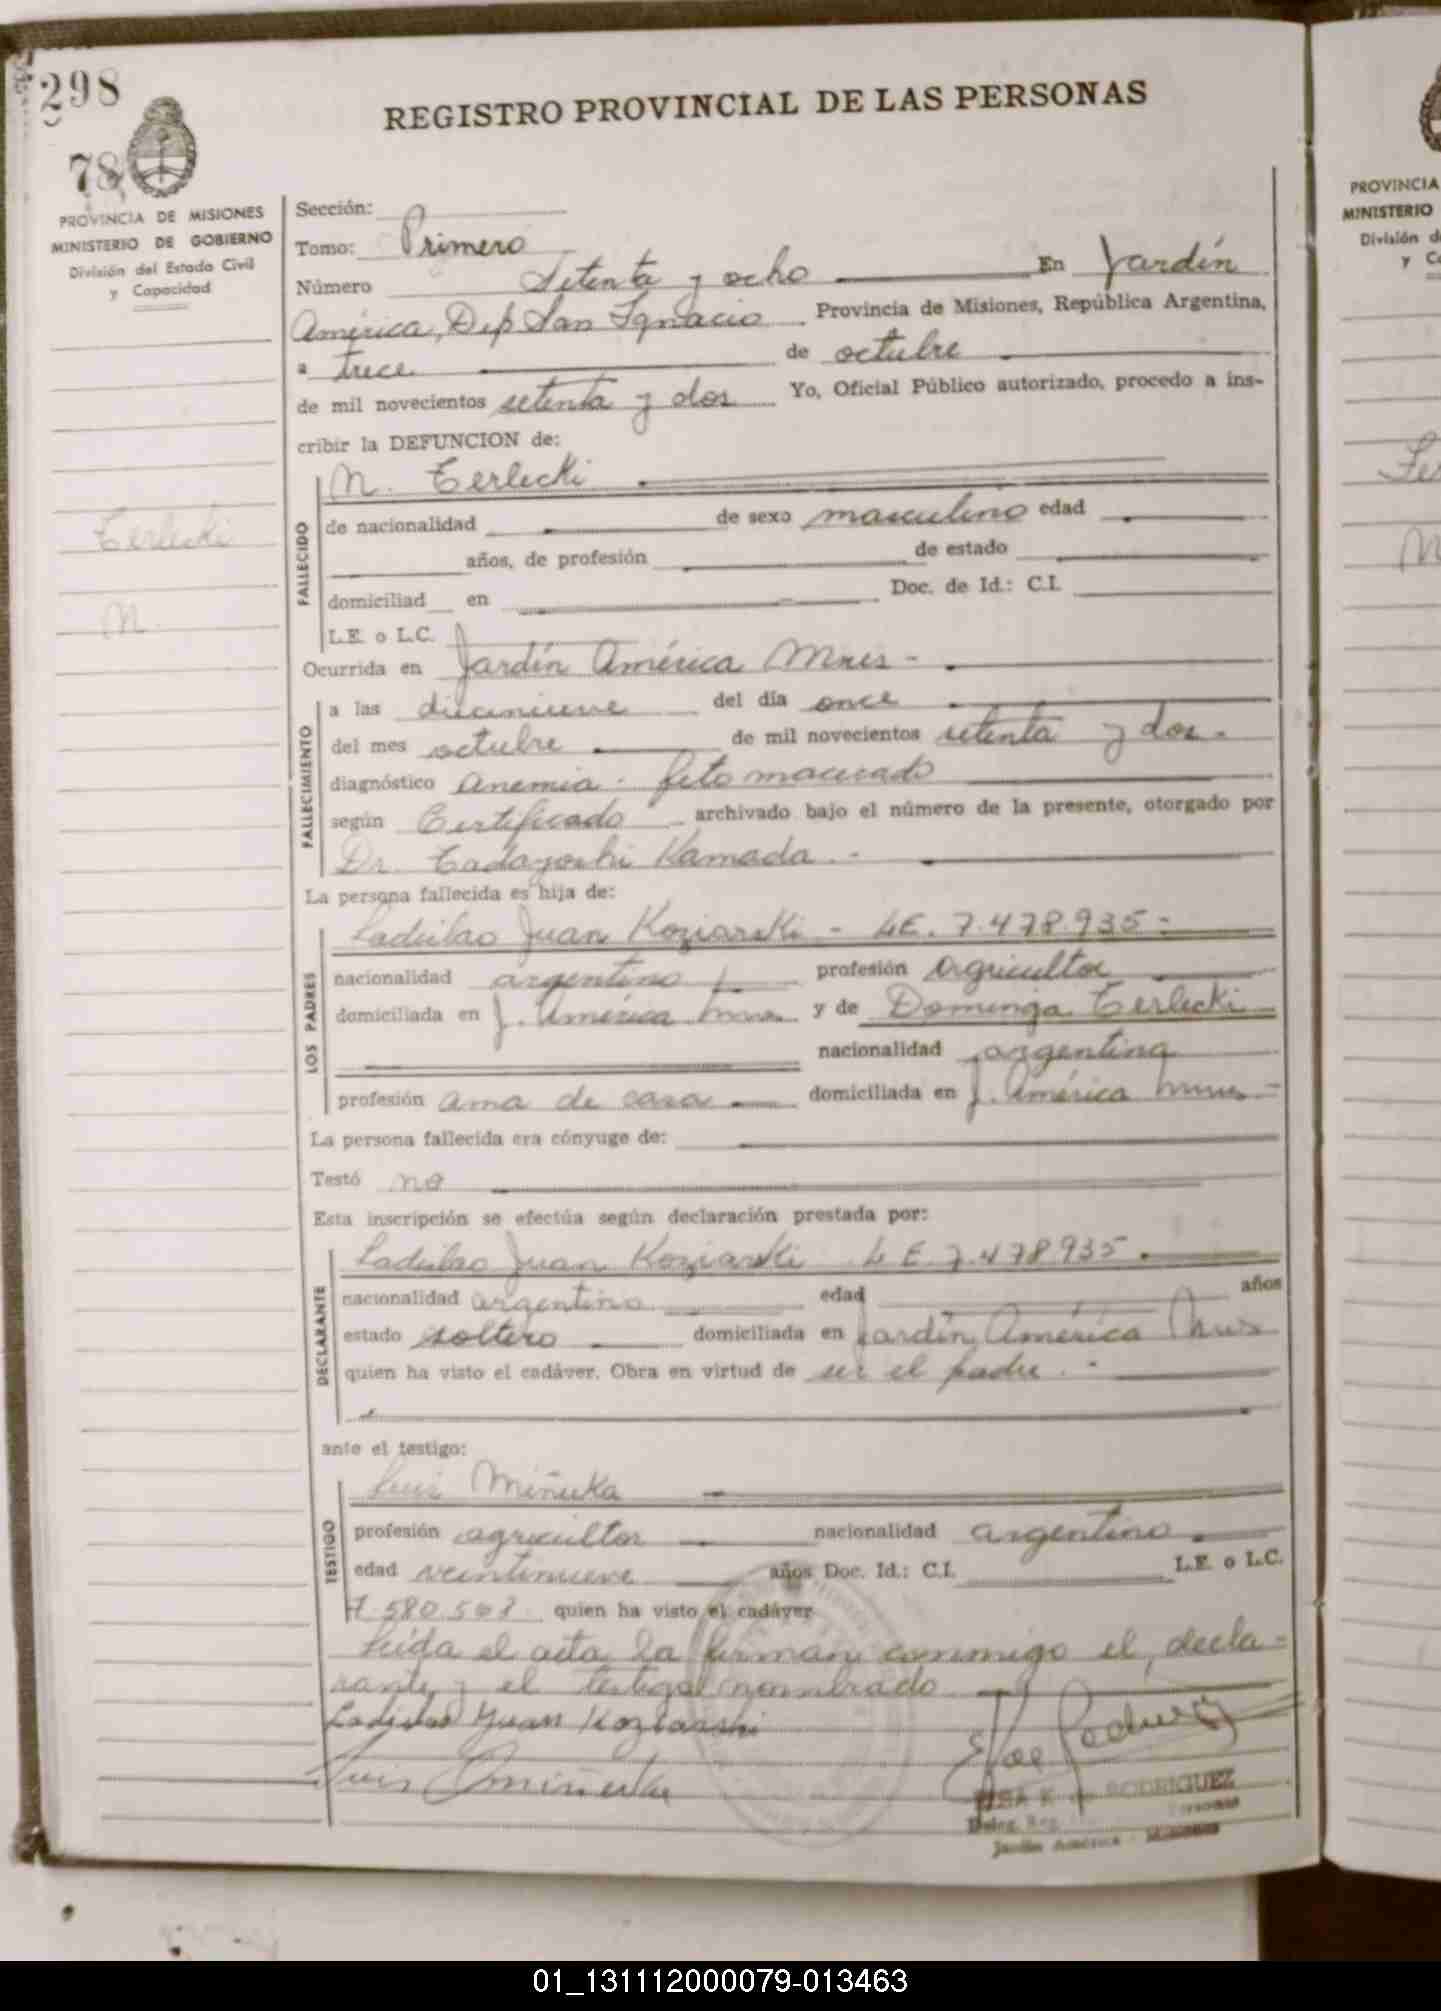 298
78
REGISTRO PROVINCIAL DE LAS PERSONAS
PROVINCIA DE MISIONES
MINISTERIO DE GOBIERNO
División del Estado Civil
y Capacidad
Terlecki
N.
Sección:
Tomo: Primero
Número Setenta y ocho En Jardín
América, Dep San Ignacio Provincia de Misiones, República Argentina,
a trece de octubre
de mil novecientos setenta y dos Yo, Oficial Público autorizado, procedo a ins-
cribir la DEFUNCION de:
FALLECIDO
N. Terlecki
de nacionalidad de sexo masculino edad
años, de profesión de estado
domiciliad en Doc. de Id.: C.I.
L.E. o L.C.
Ocurrida en Jardín América Mnes -
FALLECIMIENTO
a las diecinueve del día once
del mes octubre de mil novecientos setenta y dos -
diagnóstico anemia - feto macerado
según Certificado archivado bajo el número de la presente, otorgado por
Dr. Tadayoshi Kamada. -
La persona fallecida es hija de:
LOS PADRES
Ladislao Juan Koziarski - LE. 7.478.935 -
nacionalidad argentino profesión agricultor
domiciliada en J. América Mnes y de Dominga Terlecki
nacionalidad argentina
profesión ama de casa domiciliada en J. América Mnes -
La persona fallecida era cónyuge de:
Testó no
Esta inscripción se efectúa según declaración prestada por:
DECLARANTE
Ladislao Juan Koziarski LE. 7.478.935
nacionalidad argentino edad años
estado soltero domiciliada en Jardín América Mnes
quien ha visto el cadáver. Obra en virtud de ser el padre. -
ante el testigo:
TESTIGO
Luis Miñuka
profesión agricultor nacionalidad argentino
edad veintinueve años Doc. Id.: C.I. L.E. o L.C.
7.580.563 quien ha visto el cadáver
Leída el acta la firman conmigo el decla-
rante y el testigo nombrado
Ladislao Juan Koziarski
Luis Miñuka
RODRIGUEZ
Deleg. Reg. Personas
Jardín América - Misiones
PROVINCIA
MINISTERIO
División d
y C
01_131112000079-013463